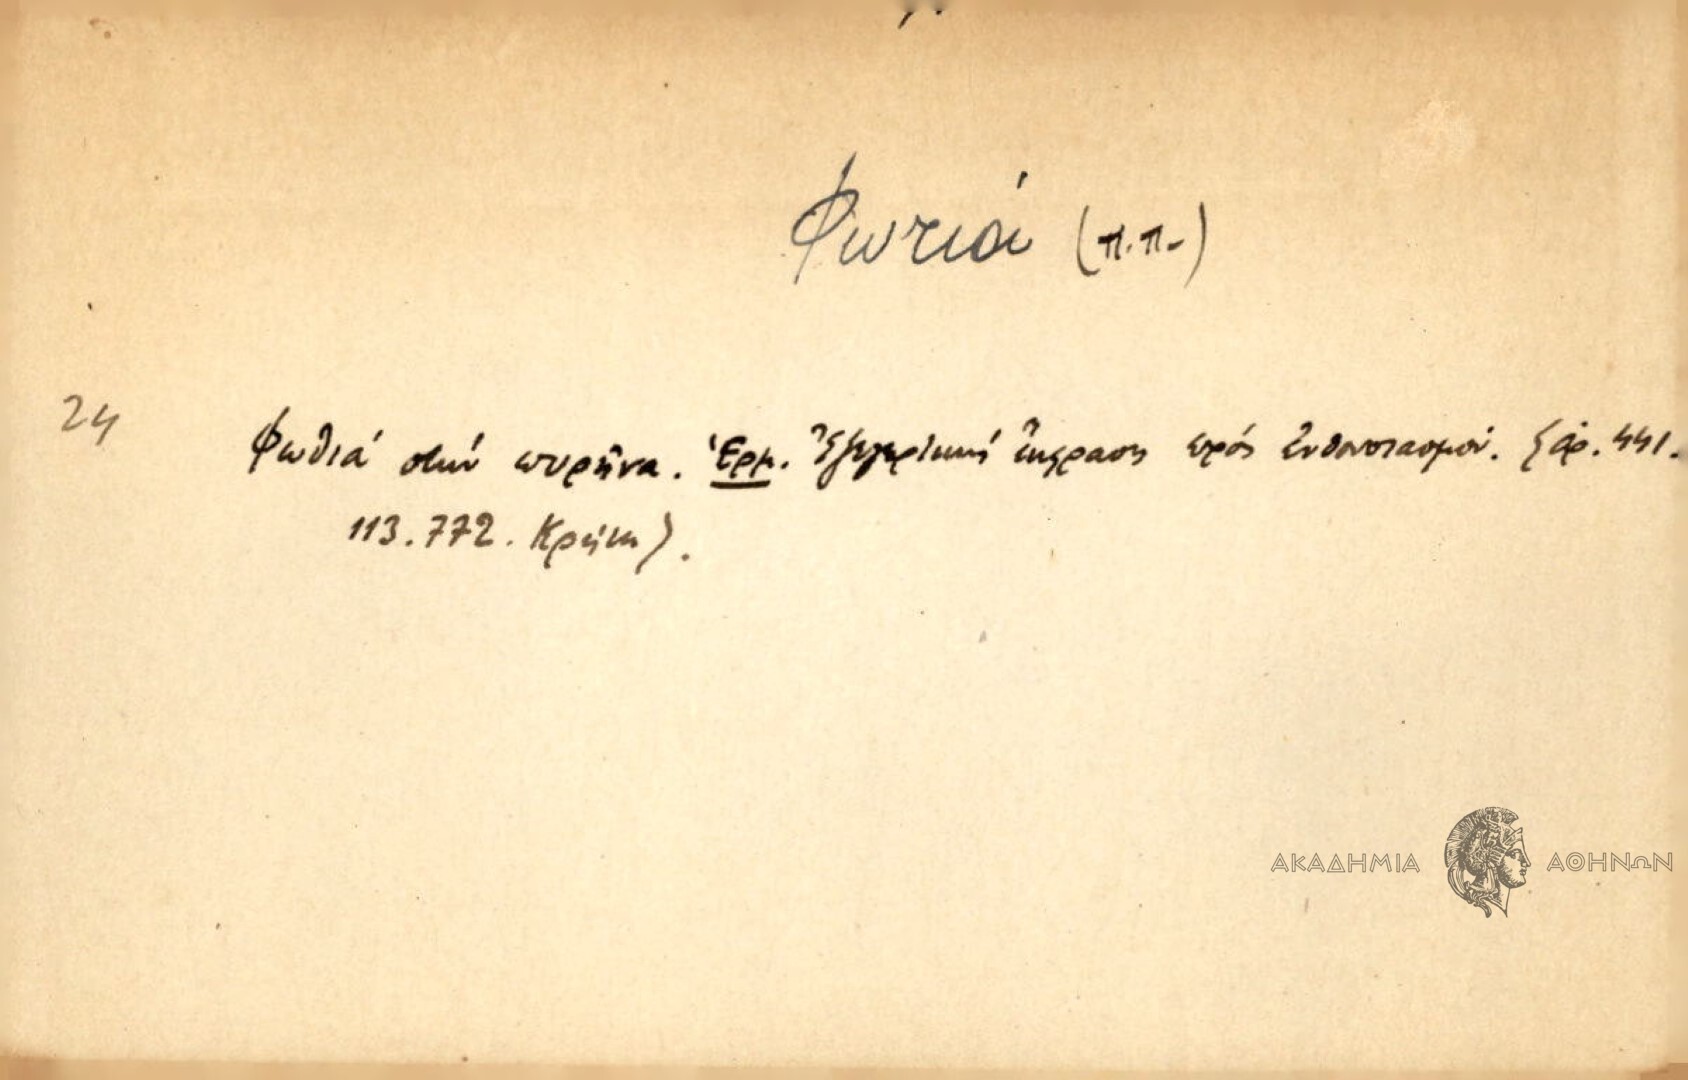 Φωτιά (π.π.)
24
Φωθιά στήν πυρῆνα. Ἑρμ. Ἐξεγερτική ἔκφρασις πρός ἐνθουσιασμόν. (ἀρ. 441.
113.772. Κρήτη).
ΑΚΑΔΗΜΙΑ ΑΘΗΝΩΝ